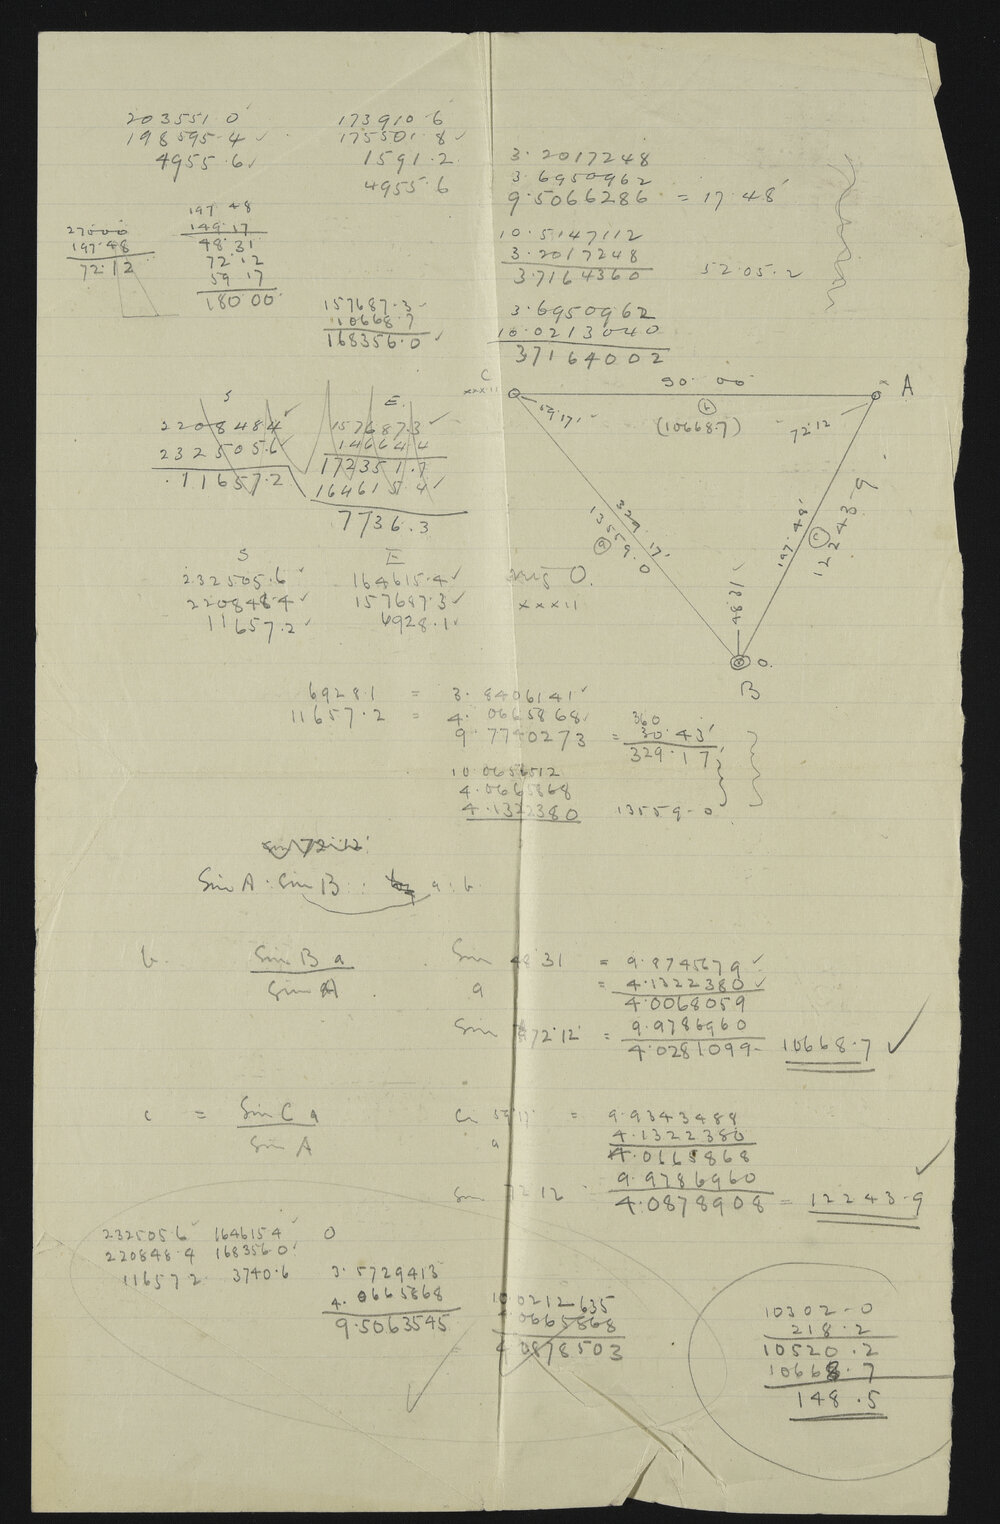 203551.0
198595.4
4955.6
173910.6
175501.8
1591.2
4955.6
3.2017248
3.6950962
9.5066286 = 17.48'
10.5147112
3.2017248
3.7164360 52.05.2
3.6950962
10.0213040
37164002
27000
197.48
72.12
197 48
149.17
48.31
72.12
59 17
180.00
157687.3
10668.7
168356.0
S
220848.4
232505.6
11657.2
E.
157687.3
14664.4
172351.7
164615.4
7736.3
C
xxxii
90° 00'
A
b
(10668.7)
59.17'
72.12
329.17'
13559.0
a
197.48'
c
12243.9
48.31
B
O.
S
232505.6
220848.4
11657.2
E
164615.4
157687.3
6928.1
O.
xxxii
6928.1 = 3.8406141
11657.2 = 4.0665868
9.7740273 = 30.43'
360
329.17'
10.0656512
4.0665868
4.1322380 13559.0
Sin 72.12'
Sin A . Sin B . a . b
b. Sin B a
Sin A
Sin 48 31 = 9.8745679
a = 4.1322380
4.0068059
Sin 72.12' = 9.9786960
4.0281099 10668.7
c = Sin C a
Sin A
Sin 59 17' = 9.9343488
a 4.1322380
4.0665868
Sin 72 12 9.9786960
4.0878908 = 12243.9
232505.6 164615.4 O
220848.4 168356.0
11657.2 3740.6
3.5729413
4.0665868
9.5063545
10.0212635
4.0665868
4.0878503
10302.0
218.2
10520.2
10668.7
148.5